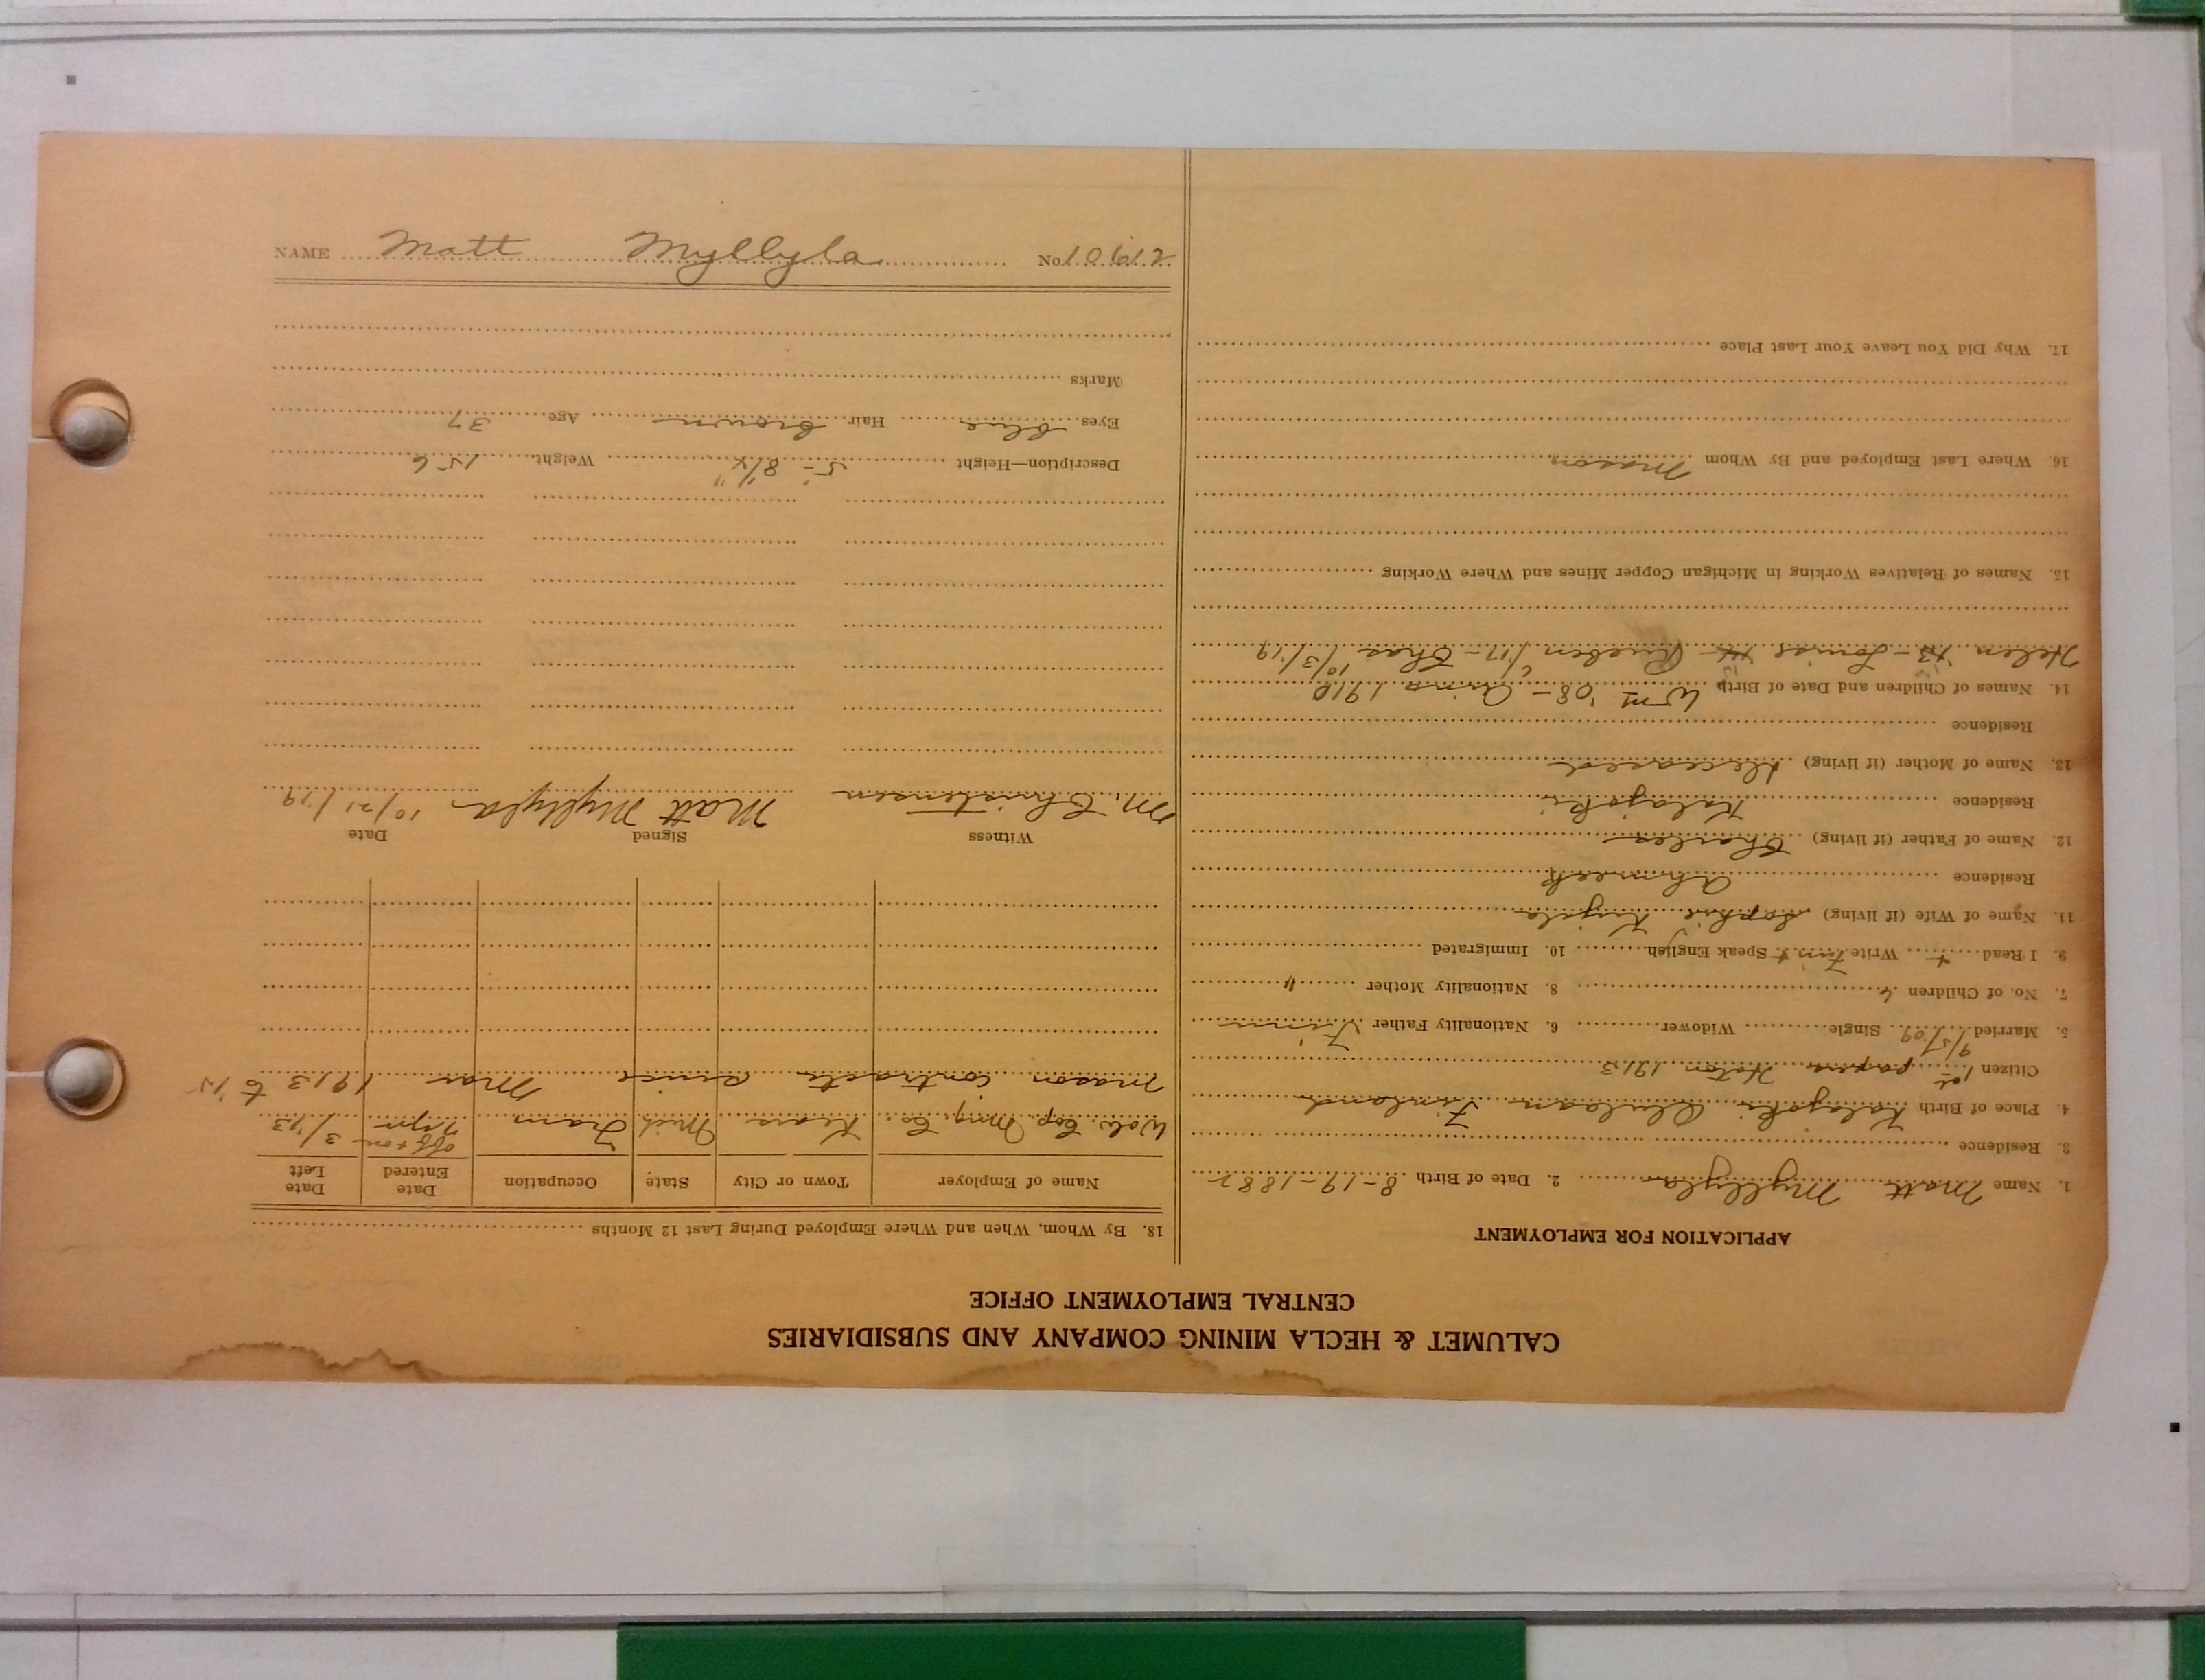 CALUMET & HECLA MINING COMPANY AND SUBSIDIARIES
CENTRAL EMPLOYMENT OFFICE
APPLICATION FOR EMPLOYMENT
1. Name Matt Myllyla 2. Date of Birth 8-19-1882
3. Residence
4. Place of Birth Kalajoki Finland
Citizen 1st papers 1913
5. Married 9/5/09 Single Widower 6. Nationality Father Finn
7. No. of Children 6 8. Nationality Mother "
9. I Read + Write Finn + Speak English 10. Immigrated
11. Name of Wife (if living) Sophie
Residence Ahmeek
12. Name of Father (if living) Charles
Residence Kalajoki
13. Name of Mother (if living) deceased
Residence
14. Names of Children and Date of Birth Wm '08 - 1910
Helen - Louise Rueben 6/17 - Chas 10/3/19
15. Names of Relatives Working in Michigan Copper Mines and Where Working
16. Where Last Employed and By Whom Mason
17. Why Did You Leave Your Last Place
18. By Whom, When and Where Employed During Last 12 Months
Name of Employer Town or City State Occupation Date Entered Date Left
Wol. Cop. Mng. Co. Kears Mich Tram off + on 3/13
mason contracts since Mar 1913 to
Witness Signed Date
M. Christensen Matt Myllyla 10/21/19
Description—Height 5-8 1/4" Weight 156
Eyes blue Hair brown Age 37
Marks
NAME Matt Myllyla No. 10612